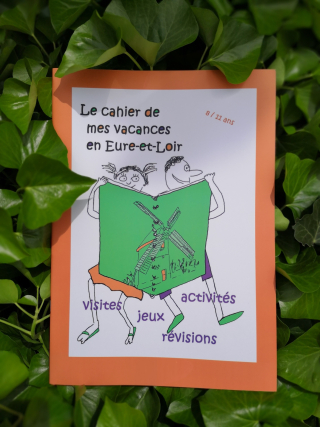 Le cahier de
mes vacances
en Eure-et-Loir
9 / 11 ans
visites
activités
jeux
révisions